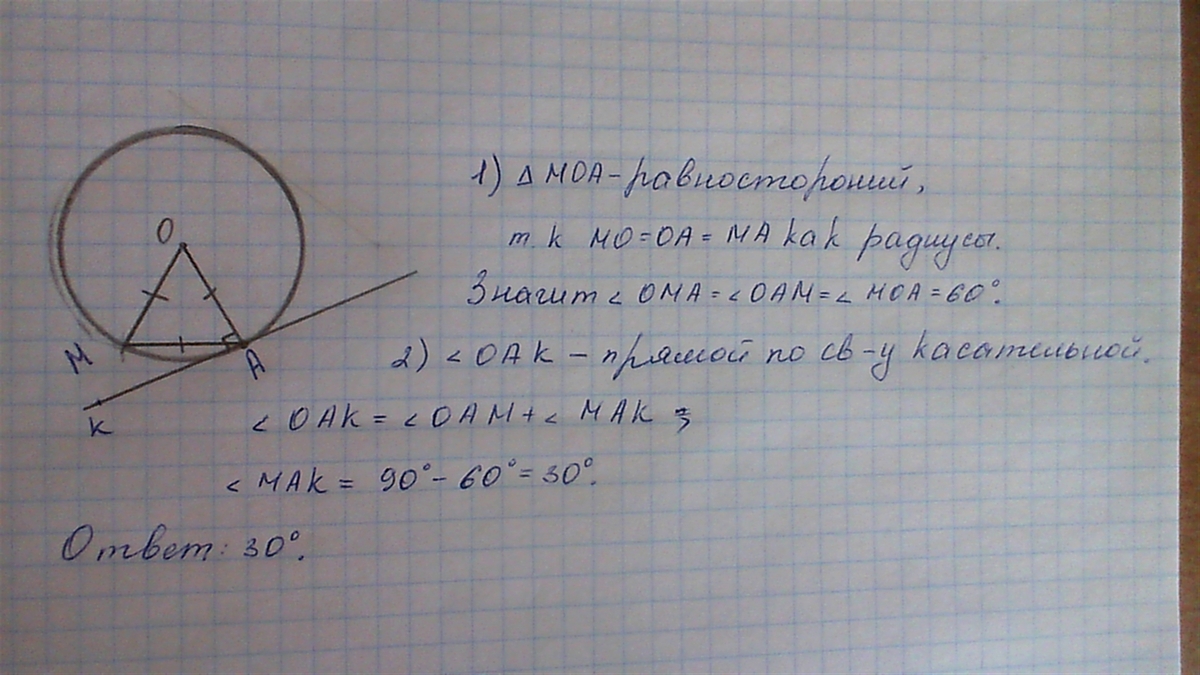 1) Δ MOA - равностороний,
т. к MO = OA = MA как радиусы.
Значит < OMA = < OAM = < MOA = 60°.
2) < OAK - прямой по св-у касательной.
< OAK = < OAM + < MAK ;
< MAK = 90° - 60° = 30°.
Ответ: 30°.
O
M
A
K